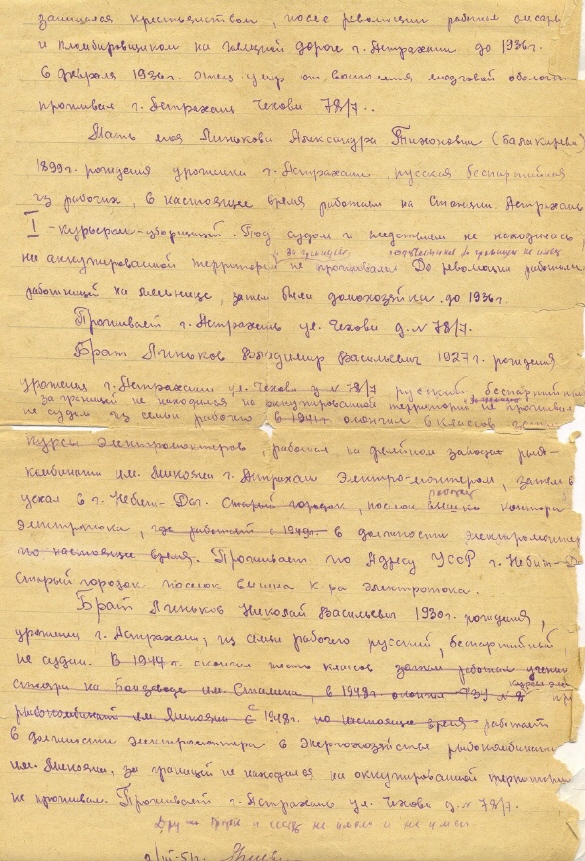 защищался крестьянством, после революции работал слесарь
и пломбировщиком на железной дороге г. Астрахани до 1936г.
6 февраля 1936г. Отец умер от воспаления мозговой оболочки
проживал г. Астрахань Чехова 78/7..
Мать моя Линькова Александра Тихоновна (Балакирева)
1899г. рождения уроженка г. Астрахани, русская беспартийная
из рабочих, в настоящее время работает на станции Астрахань
I - курьером-уборщицей. Под судом и следствием не находилась
и за границей родственников за границей не имеет
на оккупированной территории не проживала До революции работала
работницей на мельнице, затем была домохозяйка до 1936г.
Проживает г. Астрахань ул. Чехова д. № 78/7.
Брат Линьков Владимир Васильевич 1927г. рождения
уроженец г. Астрахани ул. Чехова д. № 78/7 русский, беспартийный
за границей не находился на оккупированной территории не проживал
не судим из семьи рабочего в 1941г окончил 6 классов
курсы электромонтеров, работал на рыбо-
комбината им. Микояна г. Астрахани Электро-монтером, затем
уехал в г. Небит-Даг. Старый городок, поселок вышка контора
электротока, где работает с 1949г. в должности электромонтера
по настоящее время. Проживает по Адресу УССР г. Небит-Д
Старый городок поселок вышка К-ра электротока.
Брат Линьков Николай Васильевич 1930г. рождения,
уроженец г. Астрахани, из семьи рабочего русский, беспартийный
не судим. В 1944г. окончил шесть классов затем работал учеником
слесаря на заводе им. Сталина, в 1948г. окончил РЗУ № 8 при
рыбокомбинат им. Микояна С 1948г. по настоящее время работает
в должности электромонтера в Энергохозяйстве рыбокомбината
им. Микояна, за границей не находился на оккупированной территории
не проживал. Проживает г. Астрахань ул. Чехова д. № 78/7.
Других братьев и сестер не имел и не имею